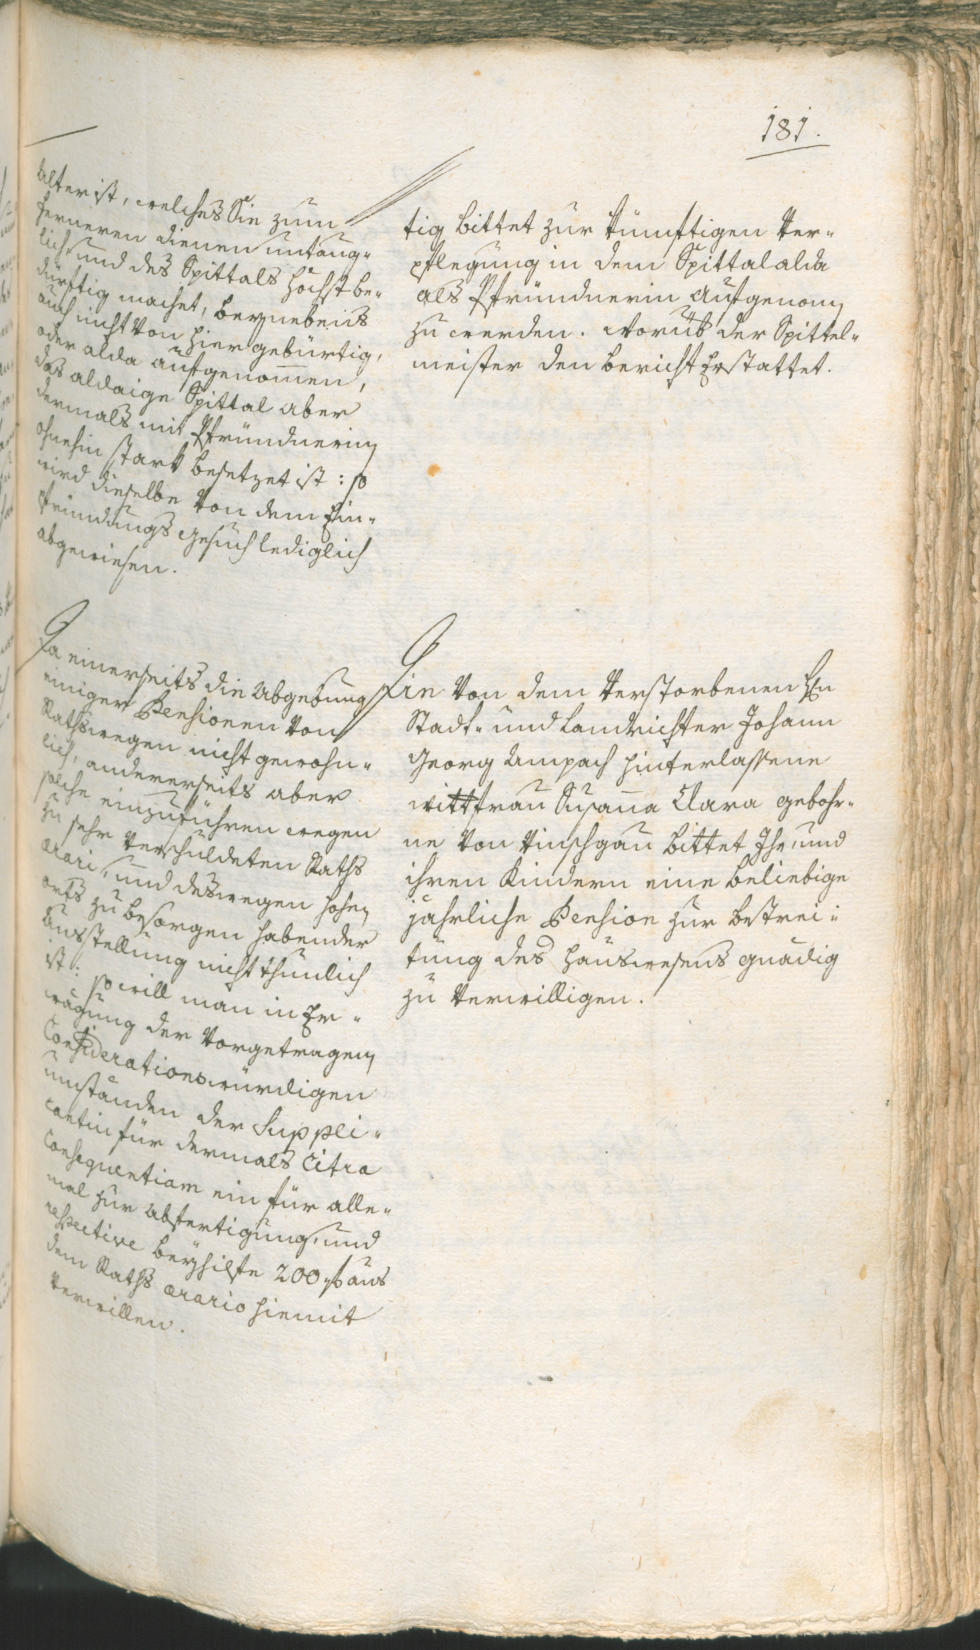 181.
alter ist, welches Sie zum
ferneren dienen untaug-
lich, und des Spittals höchst be-
dürftig machet, beynebens
auch nicht von hier gebürtig,
oder alda aufgenommen,
das aldaige Spittal aber
dermals mit Pfründnerin
ohnehin stark besetzet ist: so
wird dieselbe von dem Ein-
pfründungs gesuch lediglich
abgewiesen.
tig bittet zur künftigen Ver-
pflegung in dem Spittal alda
als Pfründnerin aufgenom
zu werden. Worüb der Spittel-
meister den bericht Erstattet.
Da einerseits die Abgebung
einiger Pensionen von
Rathswegen nicht gewohn-
lich, andererseits aber
solche einzuführen wegen
zu sehr verschuldeten Raths
ærari, und deswegen hohen
orts zu besorgen habender
ausstellung nicht thunlich
ist: so will man in Er-
wägung der vorgetragen
Considerationswürdigen
umständen der Suppli-
cantin für dermals citra
Consequentiam ein für alle-
mal zur abfertigung, und
respective beyhilfe 200 f aus
dem Raths ærario hiemit
verwillen.
Die von dem verstorbenen Hn
Stadt- und Landrichter Johann
Georg Ampach hinterlassene
wittfrau Susanna Clara gebohr-
ne von Vinschgau bittet Ihr, und
ihren Kindern eine beliebige
jährliche Pension zur bestrei-
tung des Hauswesens gnädig
zu verwilligen.